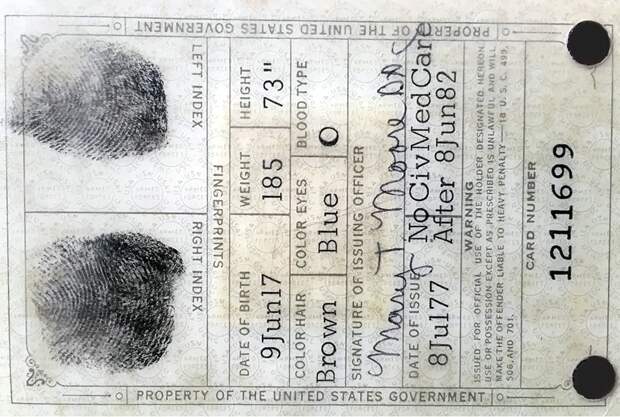 PROPERTY OF THE UNITED STATES GOVERNMENT
RIGHT INDEX LEFT INDEX
FINGERPRINTS
DATE OF BIRTH WEIGHT HEIGHT
9Jun17 185 73"
COLOR HAIR COLOR EYES BLOOD TYPE
Brown Blue O
SIGNATURE OF ISSUING OFFICER
Mary T Moore
DATE OF ISSUE No CivMedCare
8Jul77 After 8Jun82
WARNING
ISSUED FOR OFFICIAL USE OF THE HOLDER DESIGNATED HEREON.
USE OR POSSESSION EXCEPT AS PRESCRIBED IS UNLAWFUL AND WILL
MAKE THE OFFENDER LIABLE TO HEAVY PENALTY—18 U. S. C. 499,
506, AND 701.
CARD NUMBER
1211699
PROPERTY OF THE UNITED STATES GOVERNMENT